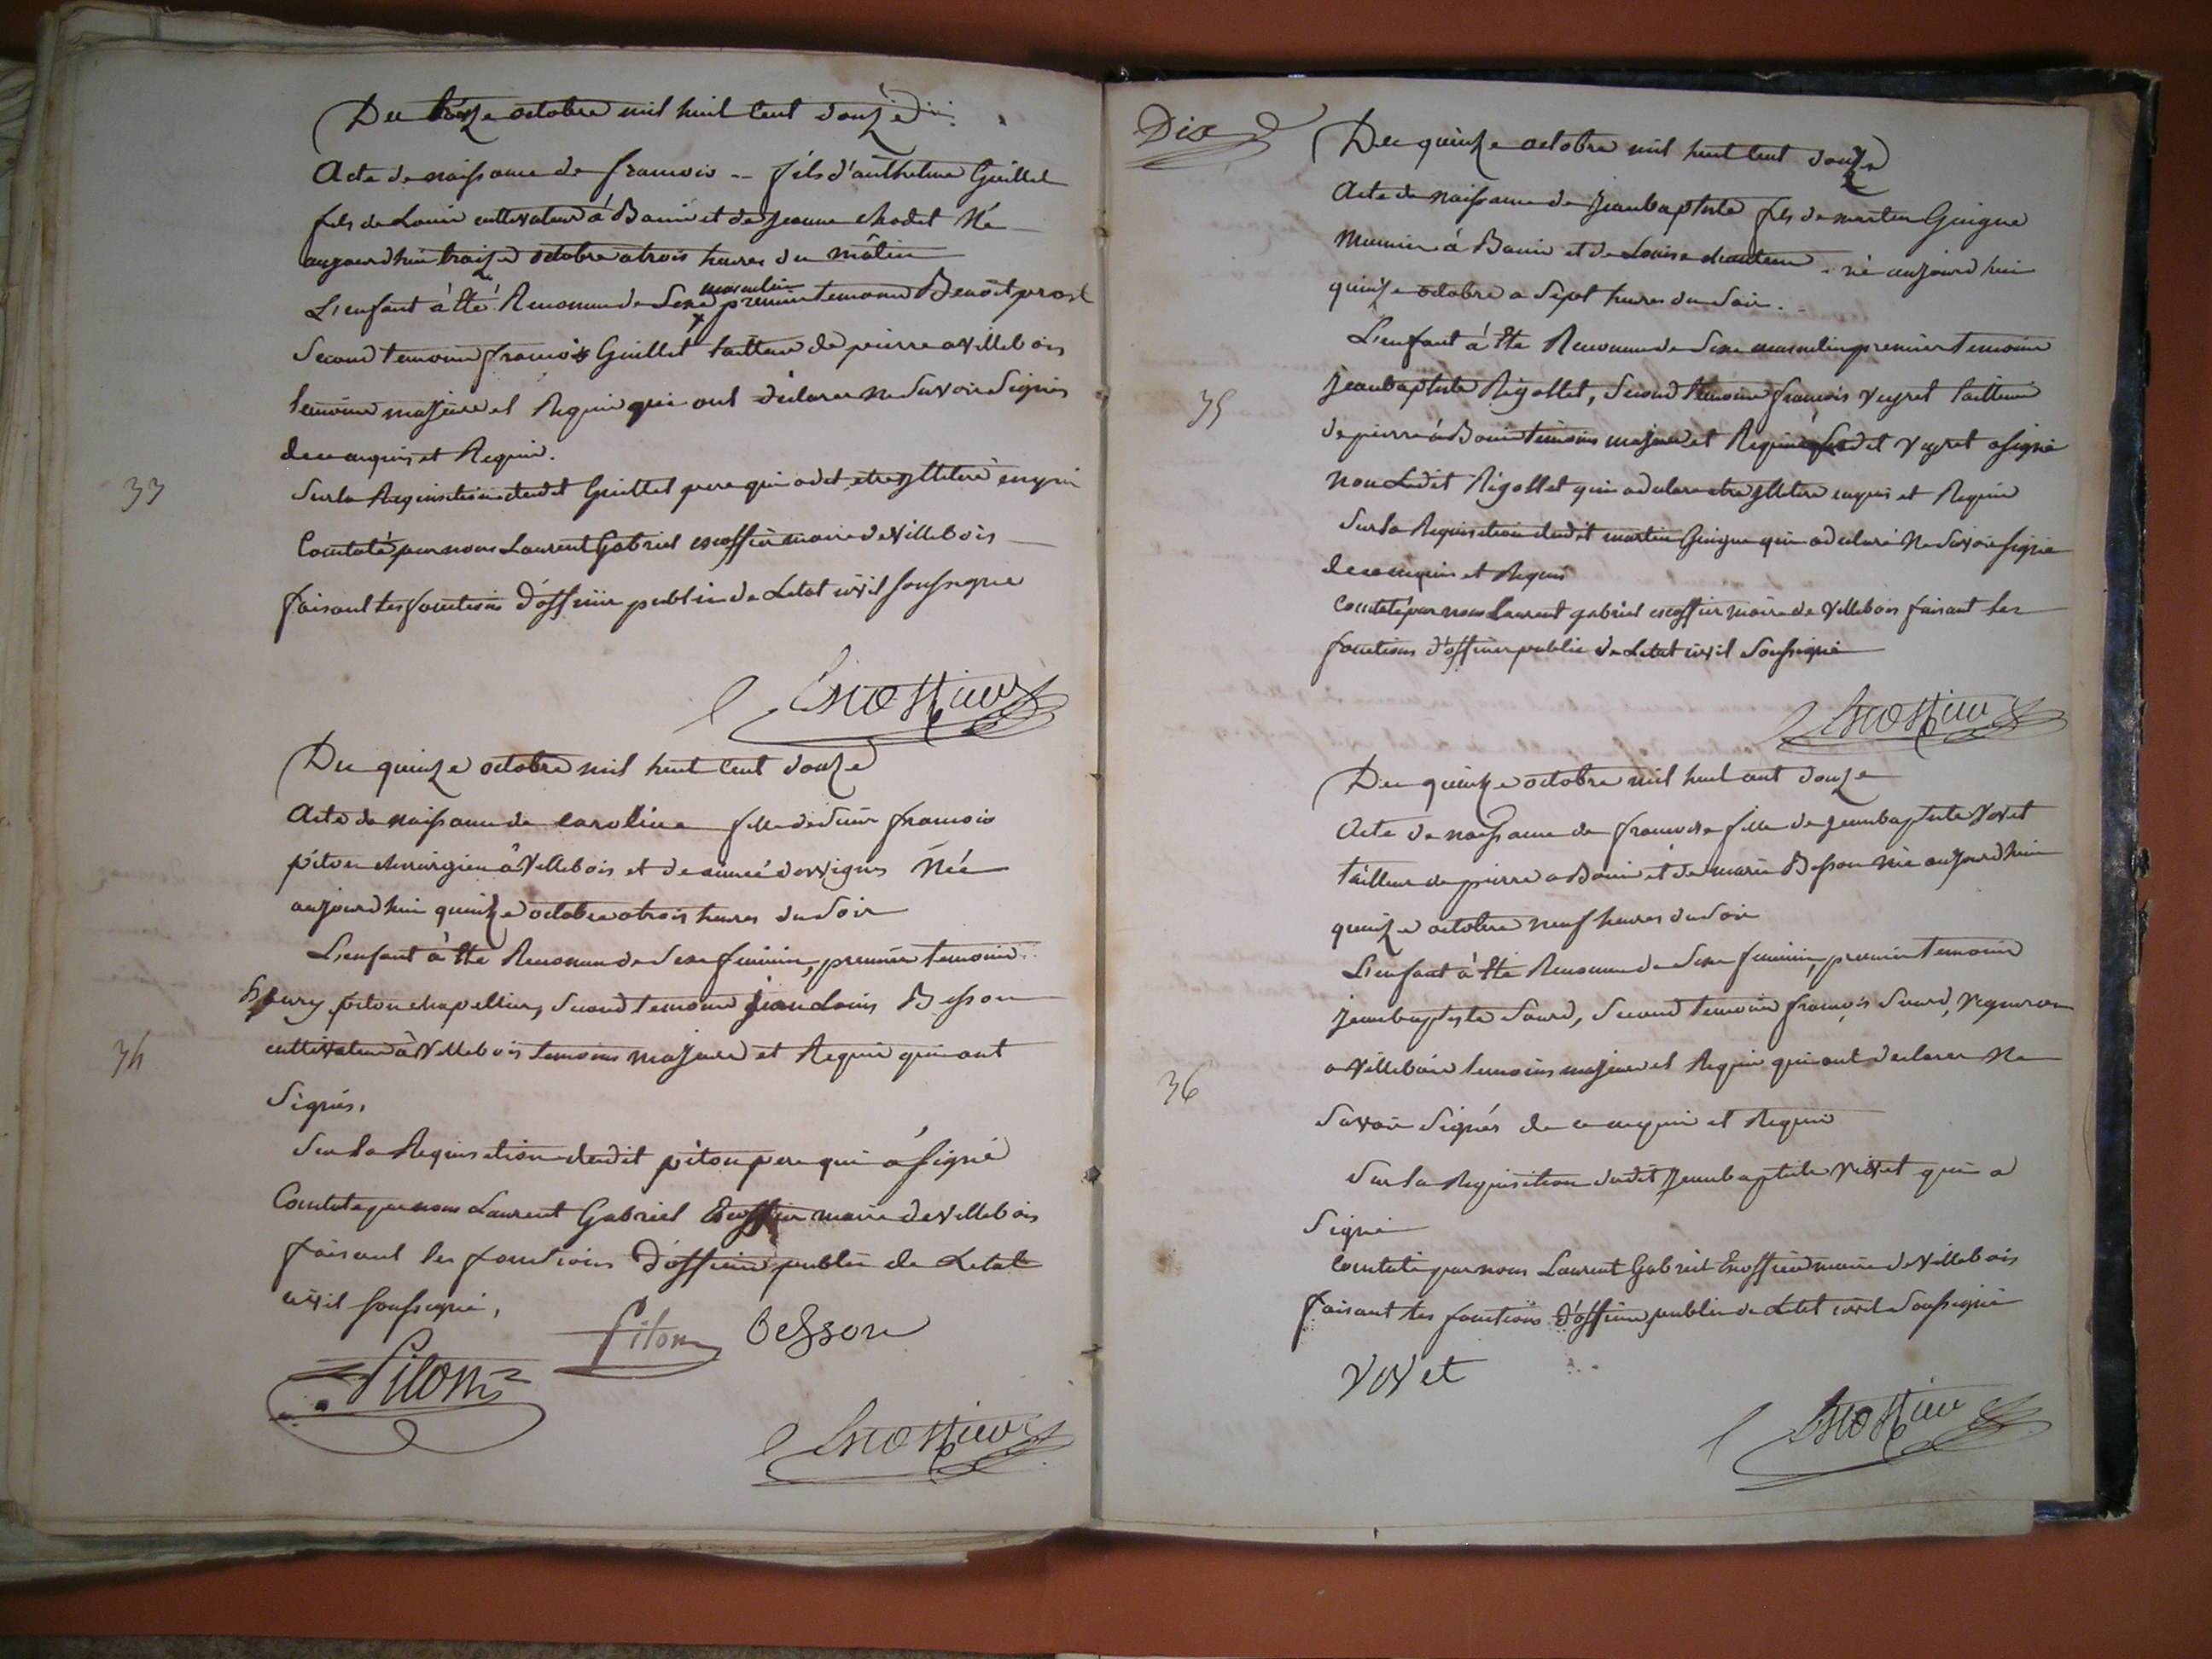 Du treize octobre mil huit cent douze
Acte de naissance de francois fils d'anthelme Guillet
fils de Louis cultivateur à Bouis et de jeanne chodet Né
aujourdhui traize octobre a trois heures du mâtin
L'enfant à êté Reconnu de Sexe masculin premier temoin Benoit prost
Second temoin francois Guillet tailleur de pierre a villebois
temoins majeurs et Requis qui ont déclarer ne Savoir Signés
de ce enquis et Requis.
33
Sur la Requisition dudit Guillet pere qui a dit etre yllitere enquis
Constaté par nous Laurent Gabriel escoffier maire de villebois
faisant les fonctions d'officier public de Letat civil soussigné
Escoffier
Du quinze octobre mil huit cent douze
Acte de naissance de caroline fille de Sieur francois
piton chirurgien à Villebois et de aimée dovvignes Née
aujourdhui quinze octobre a trois heures du Soir
L'enfant à êté Reconnu de Sexe feminin, premier temoin
henry piton chapellier, Second temoin jean Louis Besson
34
cultivateur à Villebois temoins majeurs et Requis qui ont
Signés.
Sur la Requisition dudit piton pere qui à signé
Constaté par nous Laurent Gabriel Escoffier maire de Villebois
faisant les fonctions d'officier public de Letat
civil soussigné,
Piton
besson
Piton
Escoffier
Dix
Du quinze octobre mil huit cent douze
Acte de naissance de jeanbaptiste fils de martin Guigue
Meunier à Bouis et de Louise né aujourdhui
quinze octobre a Sept heures du Soir.
L'enfant à êté Reconnu de Sexe masculin premier temoin
35
jeanbaptiste Rigollet, Second temoin francois veyret tailleur
de pierre à Bouis temoins majeurs et Requis Ledit veyret a signé
non Ledit Rigollet qui a declaré etre yllitere enquis et Requis
Sur la Requisition dudit martin Guigue qui a declaré Ne Savoir signé
de ce enquis et Requis
Constaté par nous Laurent gabriel escoffier maire de Villebois faisant les
fonctions d'officier public de Letat civil Soussigné
Escoffier
Du quinze octobre mil huit cent douze
Acte de naissance de francoise fille de jeanbaptiste Vivet
tailleur de pierre a Bouis et de marie Besson née aujourdhui
quinze octobre neuf heures du Soir
L'enfant à êté Reconnu de Sexe feminin, premier temoin
jeanbaptiste Sourd, Second temoin francois Sourd, vigneron
36
a villebois temoins majeurs et Requis qui ont declarer Ne
Savoir Signés de ce enquis et Requis
Sur la Requisition dudit jeanbaptiste Vivet qui a
Signé
Constaté par nous Laurent Gabriel Escoffier maire de Villebois
faisant les fonctions d'officier public de Letat civil Soussigné
Vivet
Escoffier